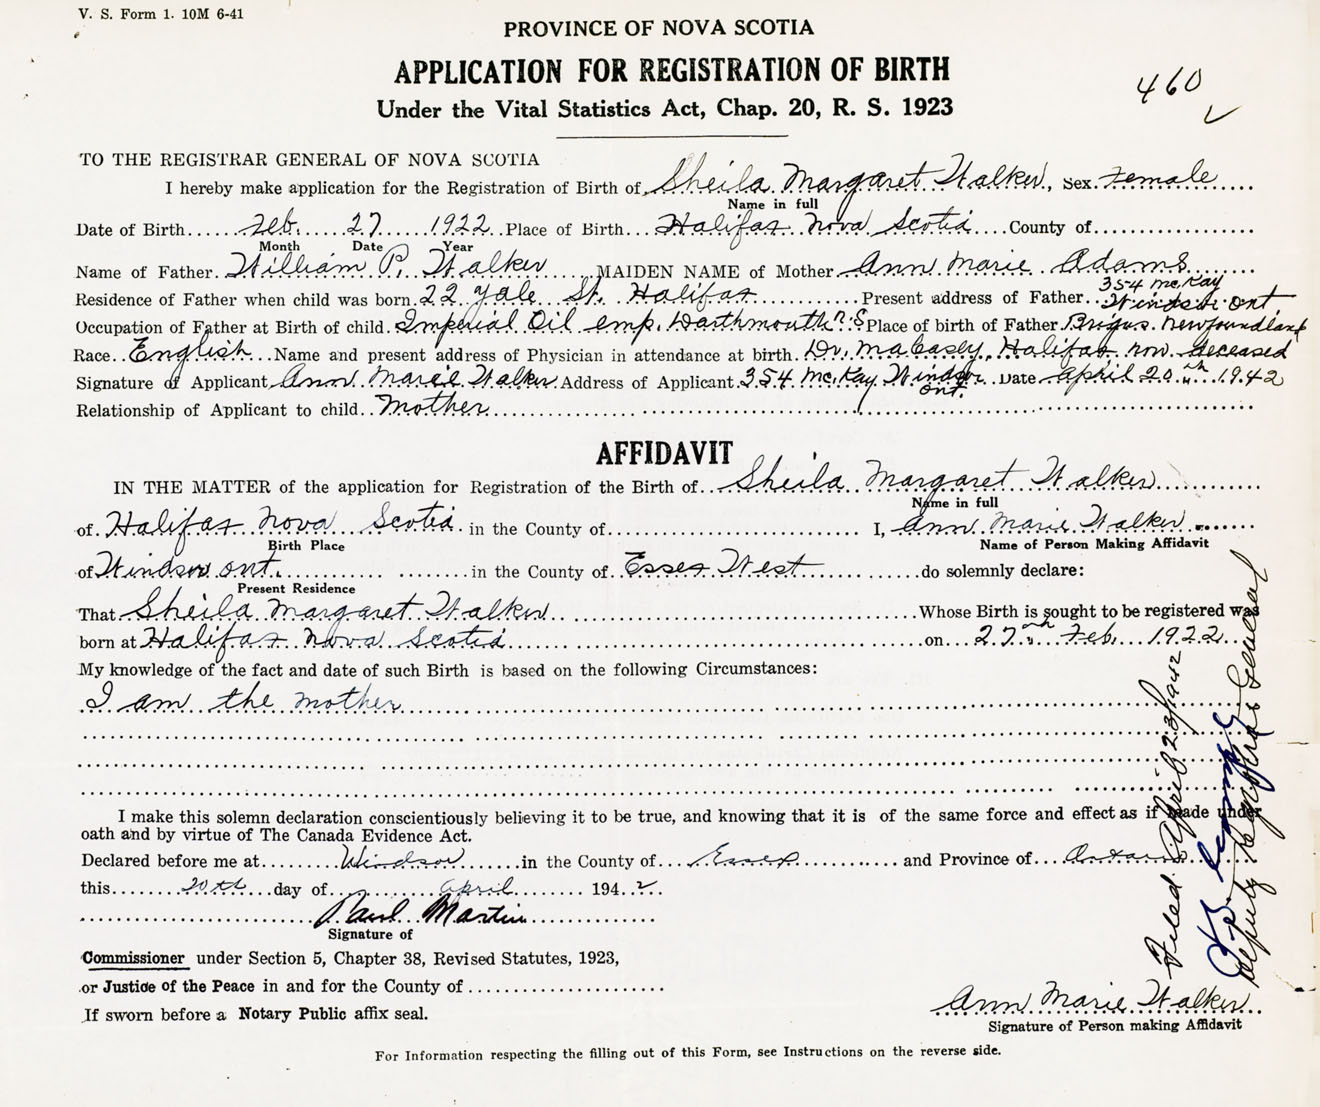 V. S. Form 1. 10M 6-41
PROVINCE OF NOVA SCOTIA
APPLICATION FOR REGISTRATION OF BIRTH
Under the Vital Statistics Act, Chap. 20, R. S. 1923
460
TO THE REGISTRAR GENERAL OF NOVA SCOTIA
I hereby make application for the Registration of Birth of Sheila Margaret Walker, Sex Female
Name in full
Date of Birth Feb. 27 1922 Place of Birth Halifax Nova Scotia County of
Month Date Year
Name of Father William P. Walker MAIDEN NAME of Mother Ann Marie Adams
Residence of Father when child was born 22 Yale St. Halifax Present address of Father 354 McKay Windsor Ont.
Occupation of Father at Birth of child Imperial Oil emp. Darthmouth N.S Place of birth of Father Brigus. Newfoundland
Race English Name and present address of Physician in attendance at birth Dr. Halifax now deceased
Signature of Applicant Ann Marie Walker Address of Applicant 354 McKay Windsor Ont. Date April 20th 1942
Relationship of Applicant to child Mother
AFFIDAVIT
IN THE MATTER of the application for Registration of the Birth of Sheila Margaret Walker
Name in full
of Halifax Nova Scotia in the County of I, Ann Marie Walker
Birth Place Name of Person Making Affidavit
of Windsor Ont. in the County of Essex West do solemnly declare:
Present Residence
That Sheila Margaret Walker Whose Birth is sought to be registered was
born at Halifax Nova Scotia on 27th Feb. 1922
My knowledge of the fact and date of such Birth is based on the following Circumstances:
I am the mother
I make this solemn declaration conscientiously believing it to be true, and knowing that it is of the same force and effect as if made under
oath and by virtue of The Canada Evidence Act.
Declared before me at Windsor in the County of Essex and Province of Ontario
this 20th day of April 1942
Paul Martin
Signature of
Commissioner under Section 5, Chapter 38, Revised Statutes, 1923,
or Justice of the Peace in and for the County of
If sworn before a Notary Public affix seal.
Ann Marie Walker
Signature of Person making Affidavit
For Information respecting the filling out of this Form, see Instructions on the reverse side.
Filed April 23/1942
Deputy Registrar General